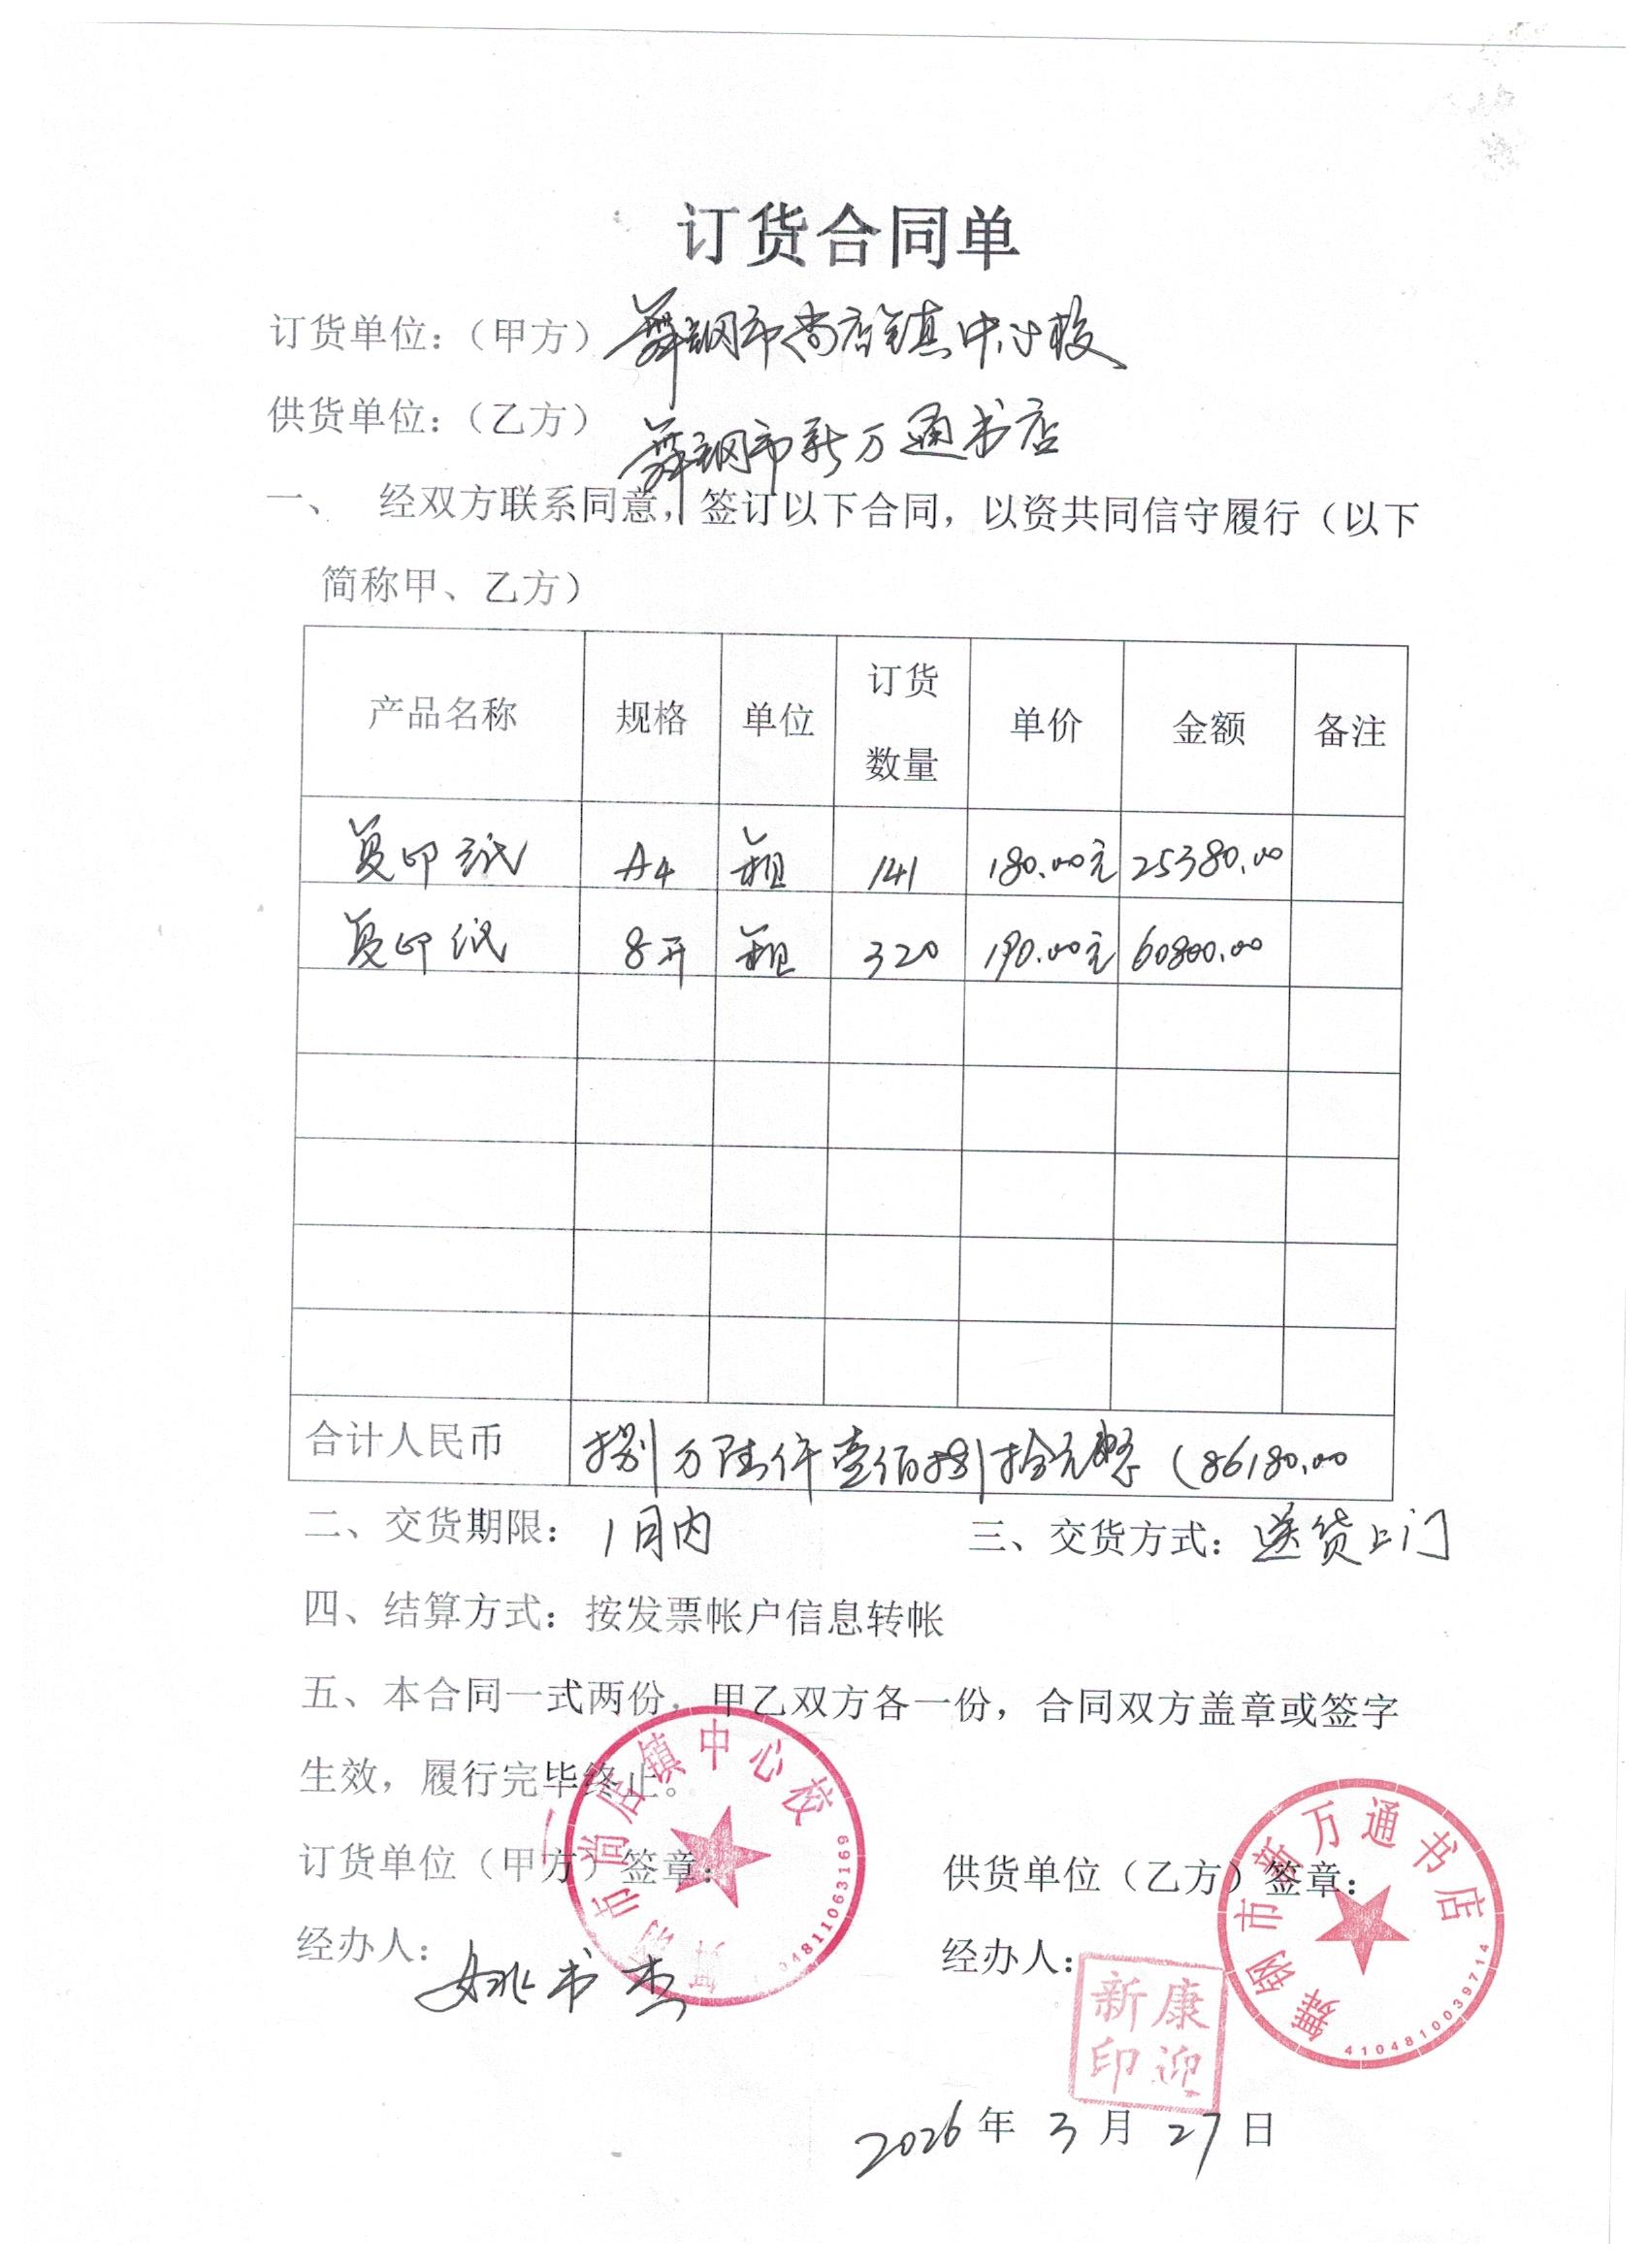 订货合同单
订货单位：（甲方）舞钢市尚店镇中心校
供货单位：（乙方）舞钢市新万通书店
一、 经双方联系同意，签订以下合同，以资共同信守履行（以下
简称甲、乙方）
产品名称 规格 单位 订货数量 单价 金额 备注
复印纸 A4 箱 141 180.00元 25380.00
复印纸 8开 箱 320 190.00元 60800.00
合计人民币 捌万陆仟壹佰捌拾元整（86180.00
二、交货期限：1月内 三、交货方式：送货上门
四、结算方式：按发票帐户信息转帐
五、本合同一式两份，甲乙双方各一份，合同双方盖章或签字
生效，履行完毕终止。
订货单位（甲方）签章： 供货单位（乙方）签章：
经办人：姚书杰 经办人：
市尚店镇中心校
04811063169
舞钢市新万通书店
4104810039714
新康
印迎
2026年3月27日